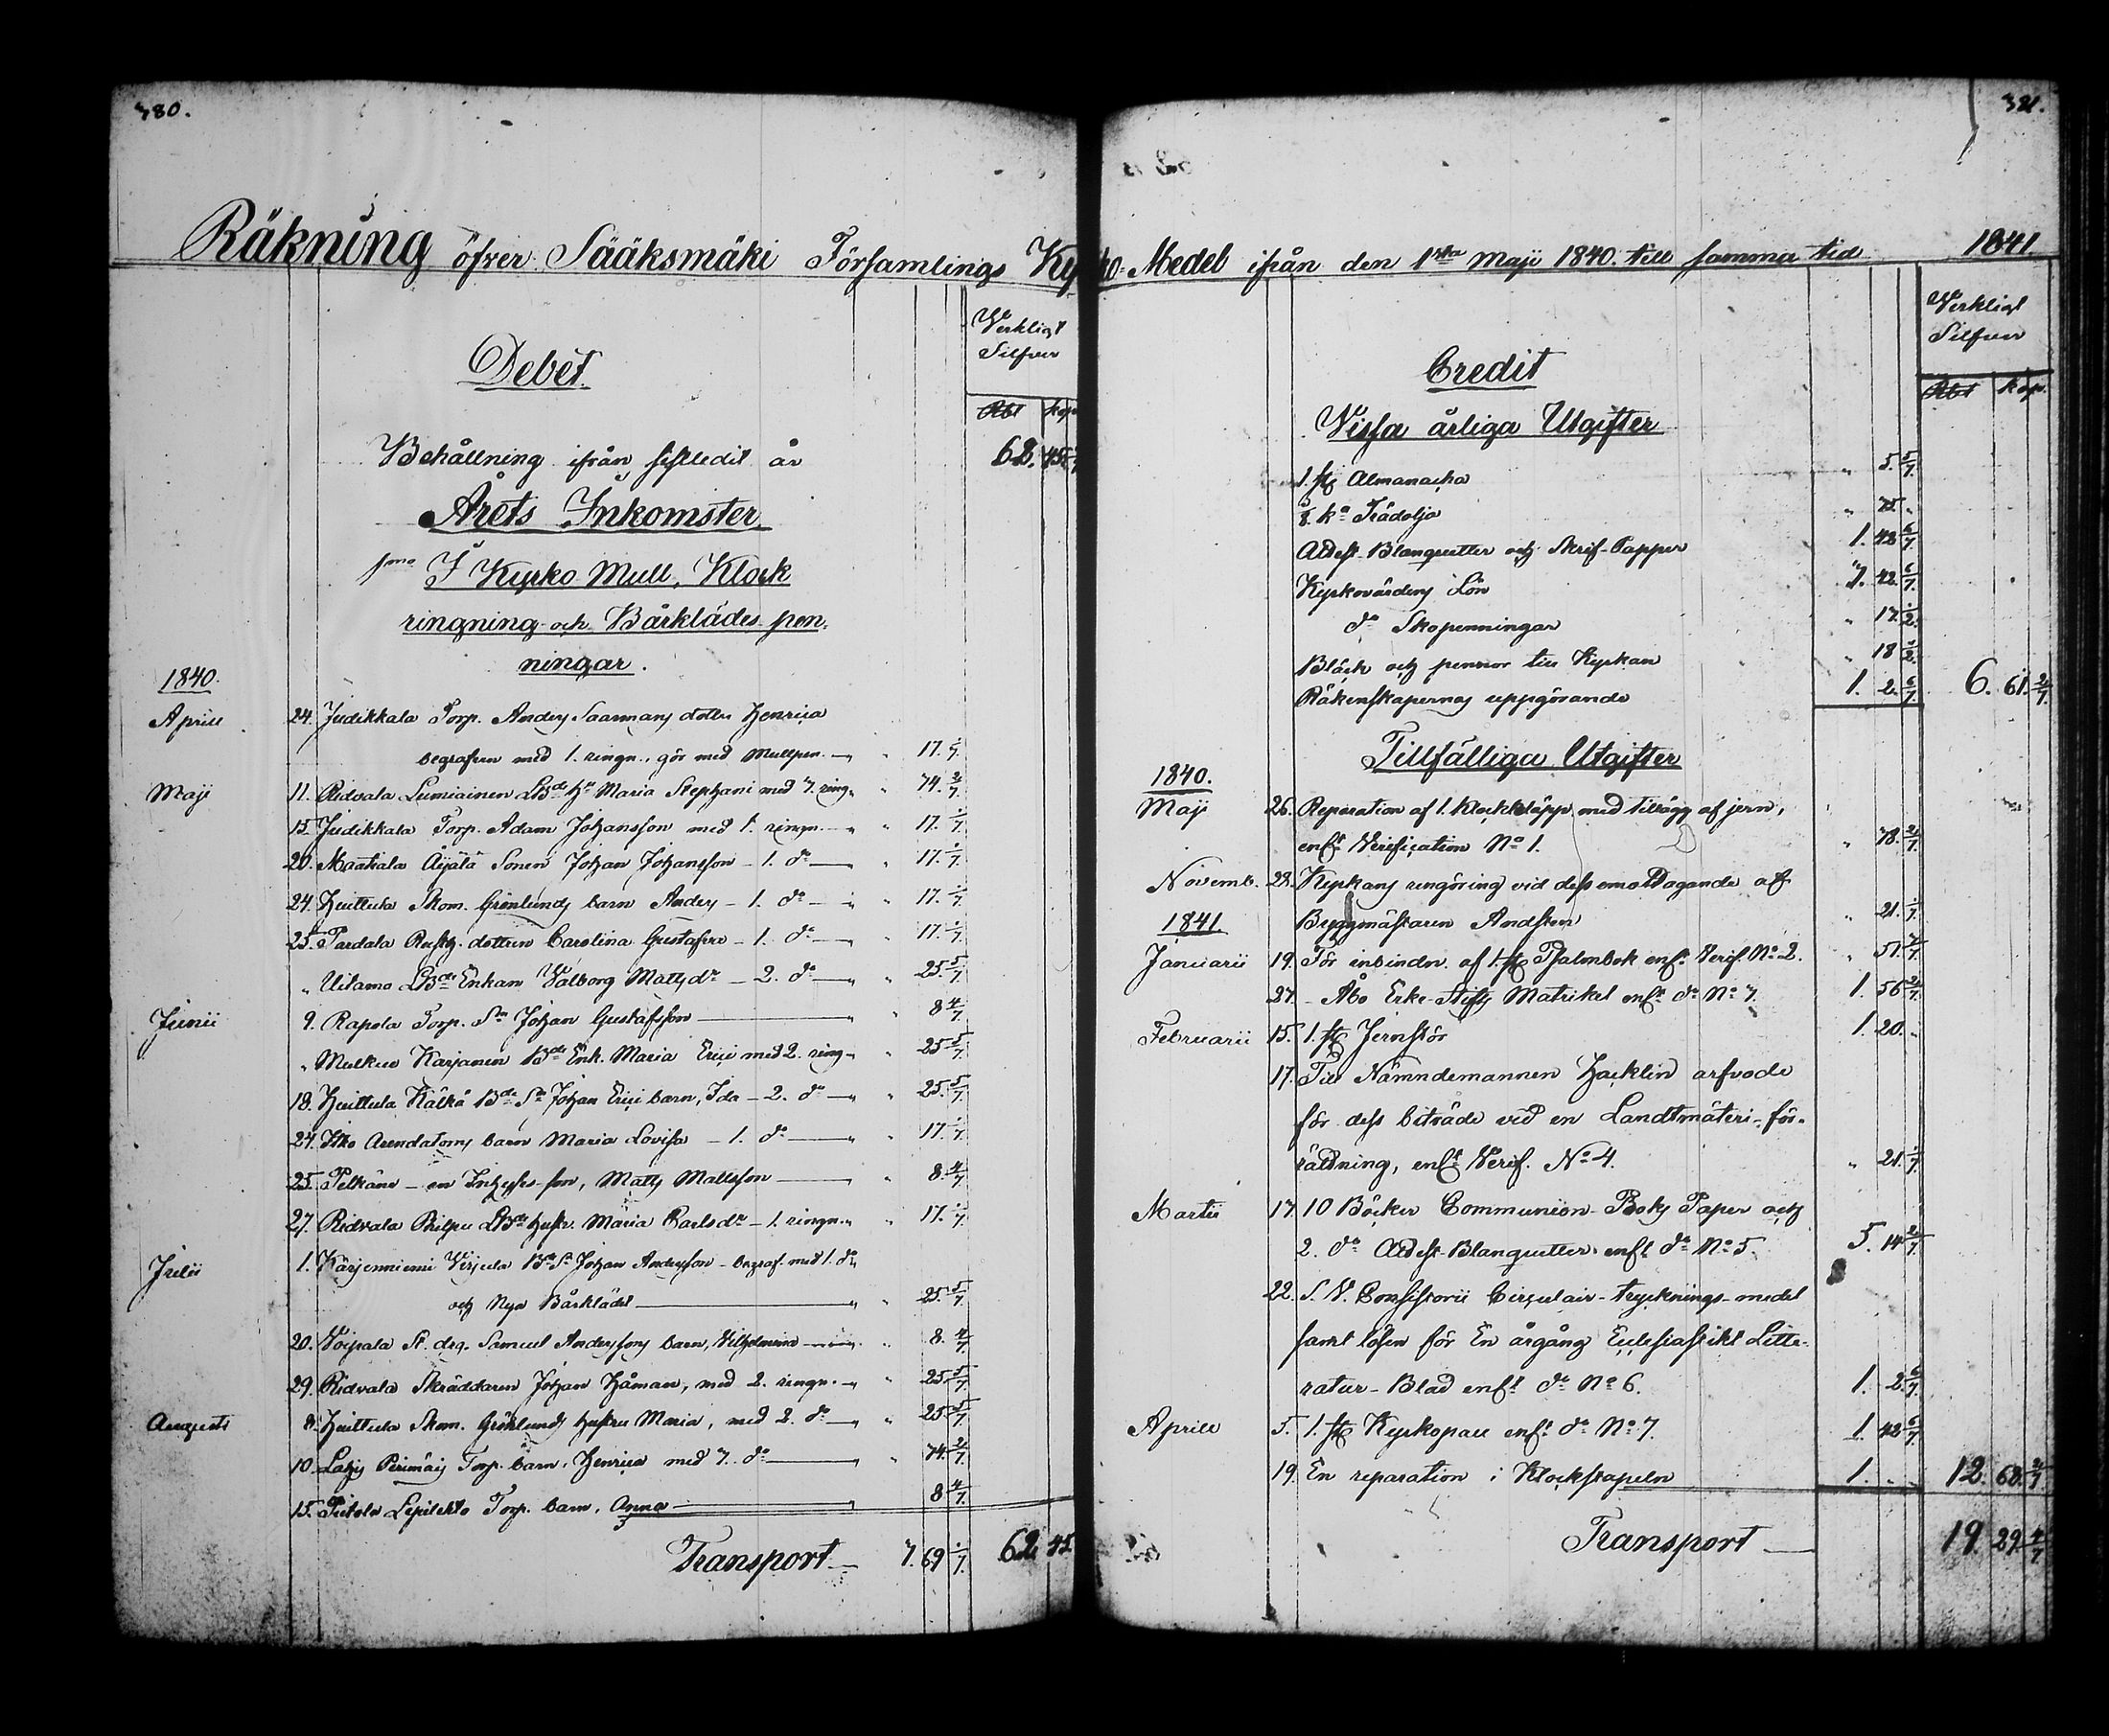 380.
Räkning öfver Sääksmäki Församlings Kyrko-Medel ifrån den 1sta Maji 1840 till samma tid 1841.
Debet
Verkligt
Silfver
Rbl kop
Behållning ifrån sistledit år 68. 45
Årets Inkomster
I Kyrko Mull, Klock
ringning och Bårklädes pen-
ningar.
1840.
Aprill 24. Judikkala Torp. Anders Saarmans dotter Henrica
begrafven med 1. ringn., gör med Mullpen. — " 17. 1/7.
Maji 11. Ridvala Lumiainen Hu Maria Stephani med 7. ring. " 74. 2/7.
15. Judikkala Torp. Adam Johansson med 1. ringn. — " 17. 1/7.
20. Maatiala Äijälä Sonen Johan Johansson — 1. do — " 17. 1/7.
24. Huittula Skom. Grönlunds barn Anders — 1. do — " 17. 1/7.
25. Tardala Rusth. dottren Carolina Gustafva — 1. do — " 17. 1/7.
" Uitamo Enkan Valborg Matts dr — 2. do — " 25. 5/7.
Junii 9. Rapola Torp. Sn Johan Gustafsson — " 8 4/7.
" Mulkun Karjanen Bde Enk. Maria Erici med 2. ring. " 25 5/7.
18. Huittula Kälkä Bde Sn Johan Erici barn, Ida — 2. do — " 25. 5/7.
24. Arendators barn Maria Lovisa — 1. do — " 17. 1/7.
25. Pelkäne — en Inhyses-son, Matts Mattsson — " 8. 4/7.
27. Ridvala Hustr. Maria Carlsdr — 1. ringn. " 17. 1/7.
Julii 1. Kärjenniemi Bde Sn Johan Andersson — begraf. med 1. do
och Nya Bårklädet — " 25. 5/7.
20. Voipala St. drg. Samuel Anderssons barn, Vilhelmina — " 8. 4/7.
29. Ridvala Skräddaren Johan Håman, med 2. ringn. — " 25 5/7.
Augusti 8. Huittula Skom. Grönlunds hustru Maria, med 2. do — " 25. 5/7.
10. Lahis Perimäis Torp. barn, Henrica med 7. do — " 74. 2/7.
15. Torp. barn, Anna — 8 4/7.
Transport — 7. 69 1/7. 62 45
381.
Verkligt
Silfver
Rbl kop.
Credit
Vissa årliga Utgifter
1. st. Almanacha " 5. 5/7.
8. ka Trädolja " 75. "
Attest-Blanquetter och Skrif-Papper 1. 42 6/7.
Kyrkovärdens Lön 1. 42. 6/7.
do Skopenningar " 17. 1/2.
Bläck och pennor till Kyrkan " 18 1/2.
Räkenskapernas uppgörande 1. 2. 6/7. 6. 61. 2/7.
Tillfälliga Utgifter
1840.
Maji 26. Reparation af 1. Klockkläpp med tillägg af jern,
enlt Verification No 1. " 78. 2/7.
Novemb. 22. Kyrkans rengöring vid dess emottagande af
1841. Byggmästaren Andsten " 21. 1/7.
Januarii 19. För inbindn. af 1. st Psalmbok enlt Verif. No 2. " 51. 3/7.
27. — Åbo Erke-stifts Matrikel enlt do No 3. 1. 56 2/7.
Februarii 15. 1. st Jernstör 1. 20. "
17. Till Nämndemannen Hacklin arfvode
för dess biträde vid en Landtmäteri-för-
rättning, enlt Verif. No 4. " 21. 1/7.
Martii 17. 10 Böcker Communion-Boks Paper och
2. do Attest-Blanquetter enlt do No 5. 5. 14 2/7.
22. S. V. Consistorii Circulair-trycknings-medel
samt lösen för En årgång Ecclesiastikt Litte-
ratur-Blad enlt do No 6. 1. 2. 6/7.
Aprill 5. 1. st Kyrkopall enlt do No 7. 1. 42 6/7.
19. En reparation i Klockstapeln 1. " " 12. 68. 2/7
Transport — 19. 29. 4/7